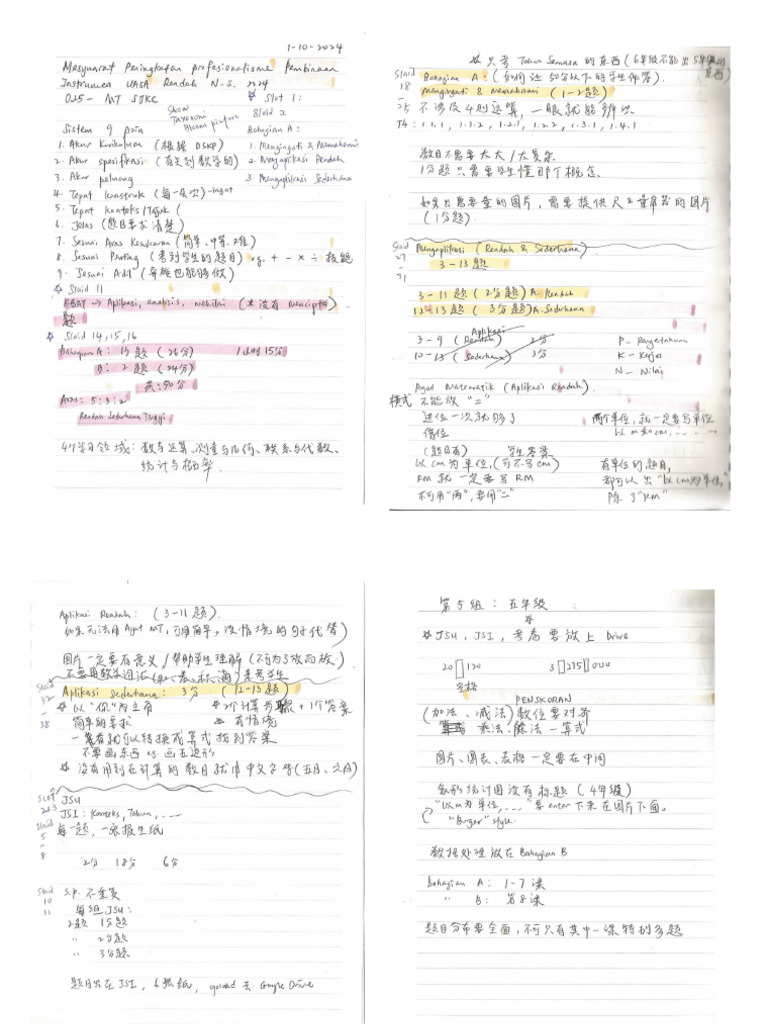 1-10-2024
Mesyuarat Peringkatan profesionalisme Pembinaan
Instrumen UASA Rendah N.S. 2024
025 - MT SJKC
Show Taxonomi Bloom picture
☆ Slot 1:
Slaid 2
Sistem 9 Poin
Bahagian A:
1. Akur Kurikulum (根据 DSKP)
1. Mengingati & Memahami
2. Akur Spesifikasi (有关到数学的)
2. Mengaplikasi Rendah
3. Akur peluang
3. Mengaplikasi Sederhana
4. Tepat konstruk (每一层次)
5. Tepat konteks/Tajuk (
6. Jelas (题目要求清楚)
7. Sesuai Aras Kesukaran (简单、中等、难)
8. Sesuai Penting (考到学生的题目) eg. + - × ÷ 技能
9. Sesuai Adil (异族也能够做)
☆ Slaid 11
KBAT → Aplikasi, analisis, menilai (没有 mencipta)
题
☆ Slaid 14, 15, 16
Bahagian A: 13 题 (26分) 1小时15分
B: 2 题 (24分)
共: 50分
Aras: 5:3:2
Rendah Sederhana Tinggi
4个学习领域：数与运算、测量与几何、联系与代数、
统计与概率.
☆ 只考 Tahun Semasa 的东西 (6年级不能出5年级的东西)
Slaid 18 - 25
Bahagian A: (如何让50分以下的学生作答)
Mengingati & Memahami (1-2题)
不涉及4则运算，一眼就能辨识
T4: 1.1.1, 1.1.2, 1.2.1, 1.2.2, 1.3.1, 1.4.1
数目不需要太大/太复杂
1分题只需要学生懂那个概念、
如果出需要量的图片，需要提供尺子量器的图片
(1分题).
Slaid 27
Mengaplikasi (Rendah & Sederhana)
3-13题
3-11题 (2分题) A. Rendah
12-13题 (3分题) A. Sederhana
Aplikasi
3-9 (Rendah) 2分
10-13 (Sederhana) 3分
P- Pengetahuan
K- Kerja
N- Nilai
Ayat Matematik (Aplikasi Rendah)
横式 不能放 "="
进位一次就够了
借位
两个单位，就一定要写单位
以 m 和 cm, ... →
(题目有) 学生答案
以 cm 为单位, (可不写cm)
RM 就一定要写 RM
不可用 "两", 要用 "二"
有单位的题目,
都可以出 "以cm为单位,"
除了 "RM"
Aplikasi Rendah: (3-11题).
如果无法用 Ayat MT, 可用简单，没情境的句子代替)
图片一定要有意义/帮助学生理解 (不可为了放而放.)
Slaid 32 - 38
Aplikasi Sederhana: 3分 (12-13题)
☆ 以 "你" 为主角
☆ 2个计算步骤 + 1个答案
简单的要求
☆ 有情境
一看就可以转换成算式找到答案
不要画东西 eg. 画五边形
☆ 没有用到在计算的数目就用中文字写 (五月、六月)
Slot 2&3
JSU
JSI: Konteks, Tahun, ...
Slaid 5 - 8
每一题，一张报生纸
2分 18分 6分
Slaid 10 11
S.P. 不重复
每组 JSU:
2题 1分题
" 2分题
" 3分题
题目出在 JSI, 6张纸, upload 去 Google Drive
第5组：五年级
☆ JSU, JSI, 考卷要放上 Drive
20▯120 3▯215▯000
空格
PENSKORAN
(加法、减法) 数位要对齐
乘法、除法 一算式
图片、图表、表格一定要在中间
象形统计图没有标题 (4年级)
"以m为单位, ...." 要 enter 下来在图片下面.
"Burger" style.
数据处理放在 Bahagian B
Bahagian A: 1-7课
" B: 第8课
题目分布要全面，不可只有其中一课特别多题